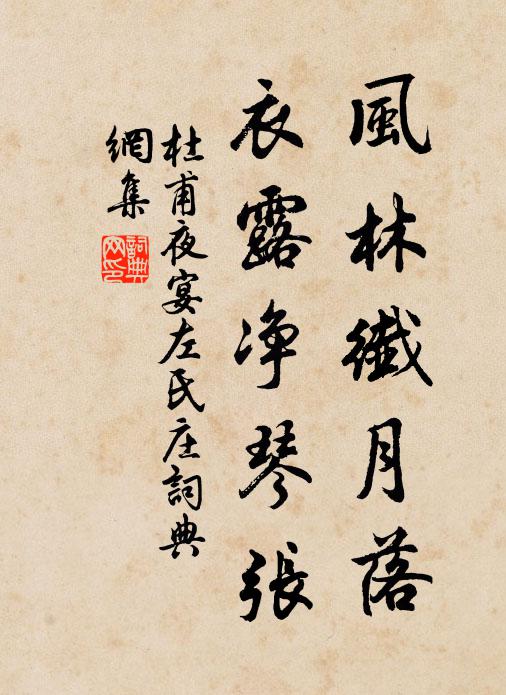 風林纖月落
衣露净琴張
杜甫夜宴左氏庄詞典
網集
詞典
网印